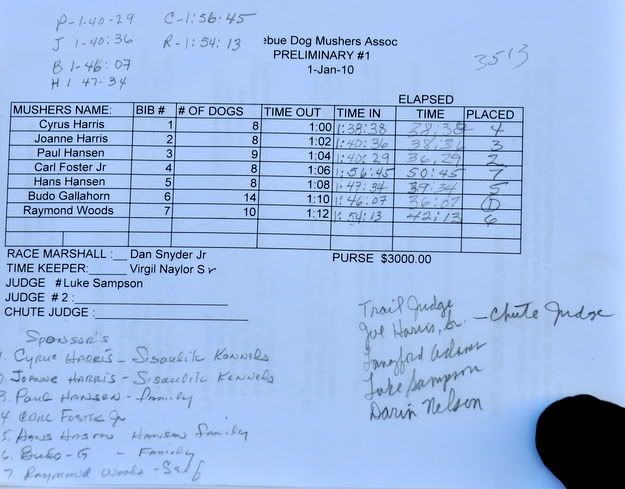 P-1-40-29 C-1:56.45
J 1-40:36 R-1:54:13
B 1-46:07
H 1 47-34
ebue Dog Mushers Assoc
PRELIMINARY #1
1-Jan-10
3513
ELAPSED
MUSHERS NAME: BIB # # OF DOGS TIME OUT TIME IN TIME PLACED
Cyrus Harris 1 8 1:00 1:38:38 38:38 4
Joanne Harris 2 8 1:02 1:40:36 38:36 3
Paul Hansen 3 9 1:04 1:40:29 36,29 2
Carl Foster Jr 4 8 1:06 1:56:45 50:45 7
Hans Hansen 5 8 1:08 1:47:34 39:34 5
Budo Gallahorn 6 14 1:10 1:46:07 36:07 1
Raymond Woods 7 10 1:12 1:54:13 42:13 6
RACE MARSHALL :__ Dan Snyder Jr PURSE $3000.00
TIME KEEPER:______ Virgil Naylor Sr
JUDGE #Luke Sampson
JUDGE # 2 :
CHUTE JUDGE :
Trail Judge
Joe Harris, Sr. - Chute Judge
Langford Adams
Luke Sampson
Darin Nelson
Sponsor's
1. Cyrus Harris - Sisaulik Kennels
2. Joanne Harris - Sisaulik Kennels
3. Paul Hansen - family
4. Carl Foster Jr
5. Hans Hansen family
6. Budo-G - Family
7 Raymond Woods - Self